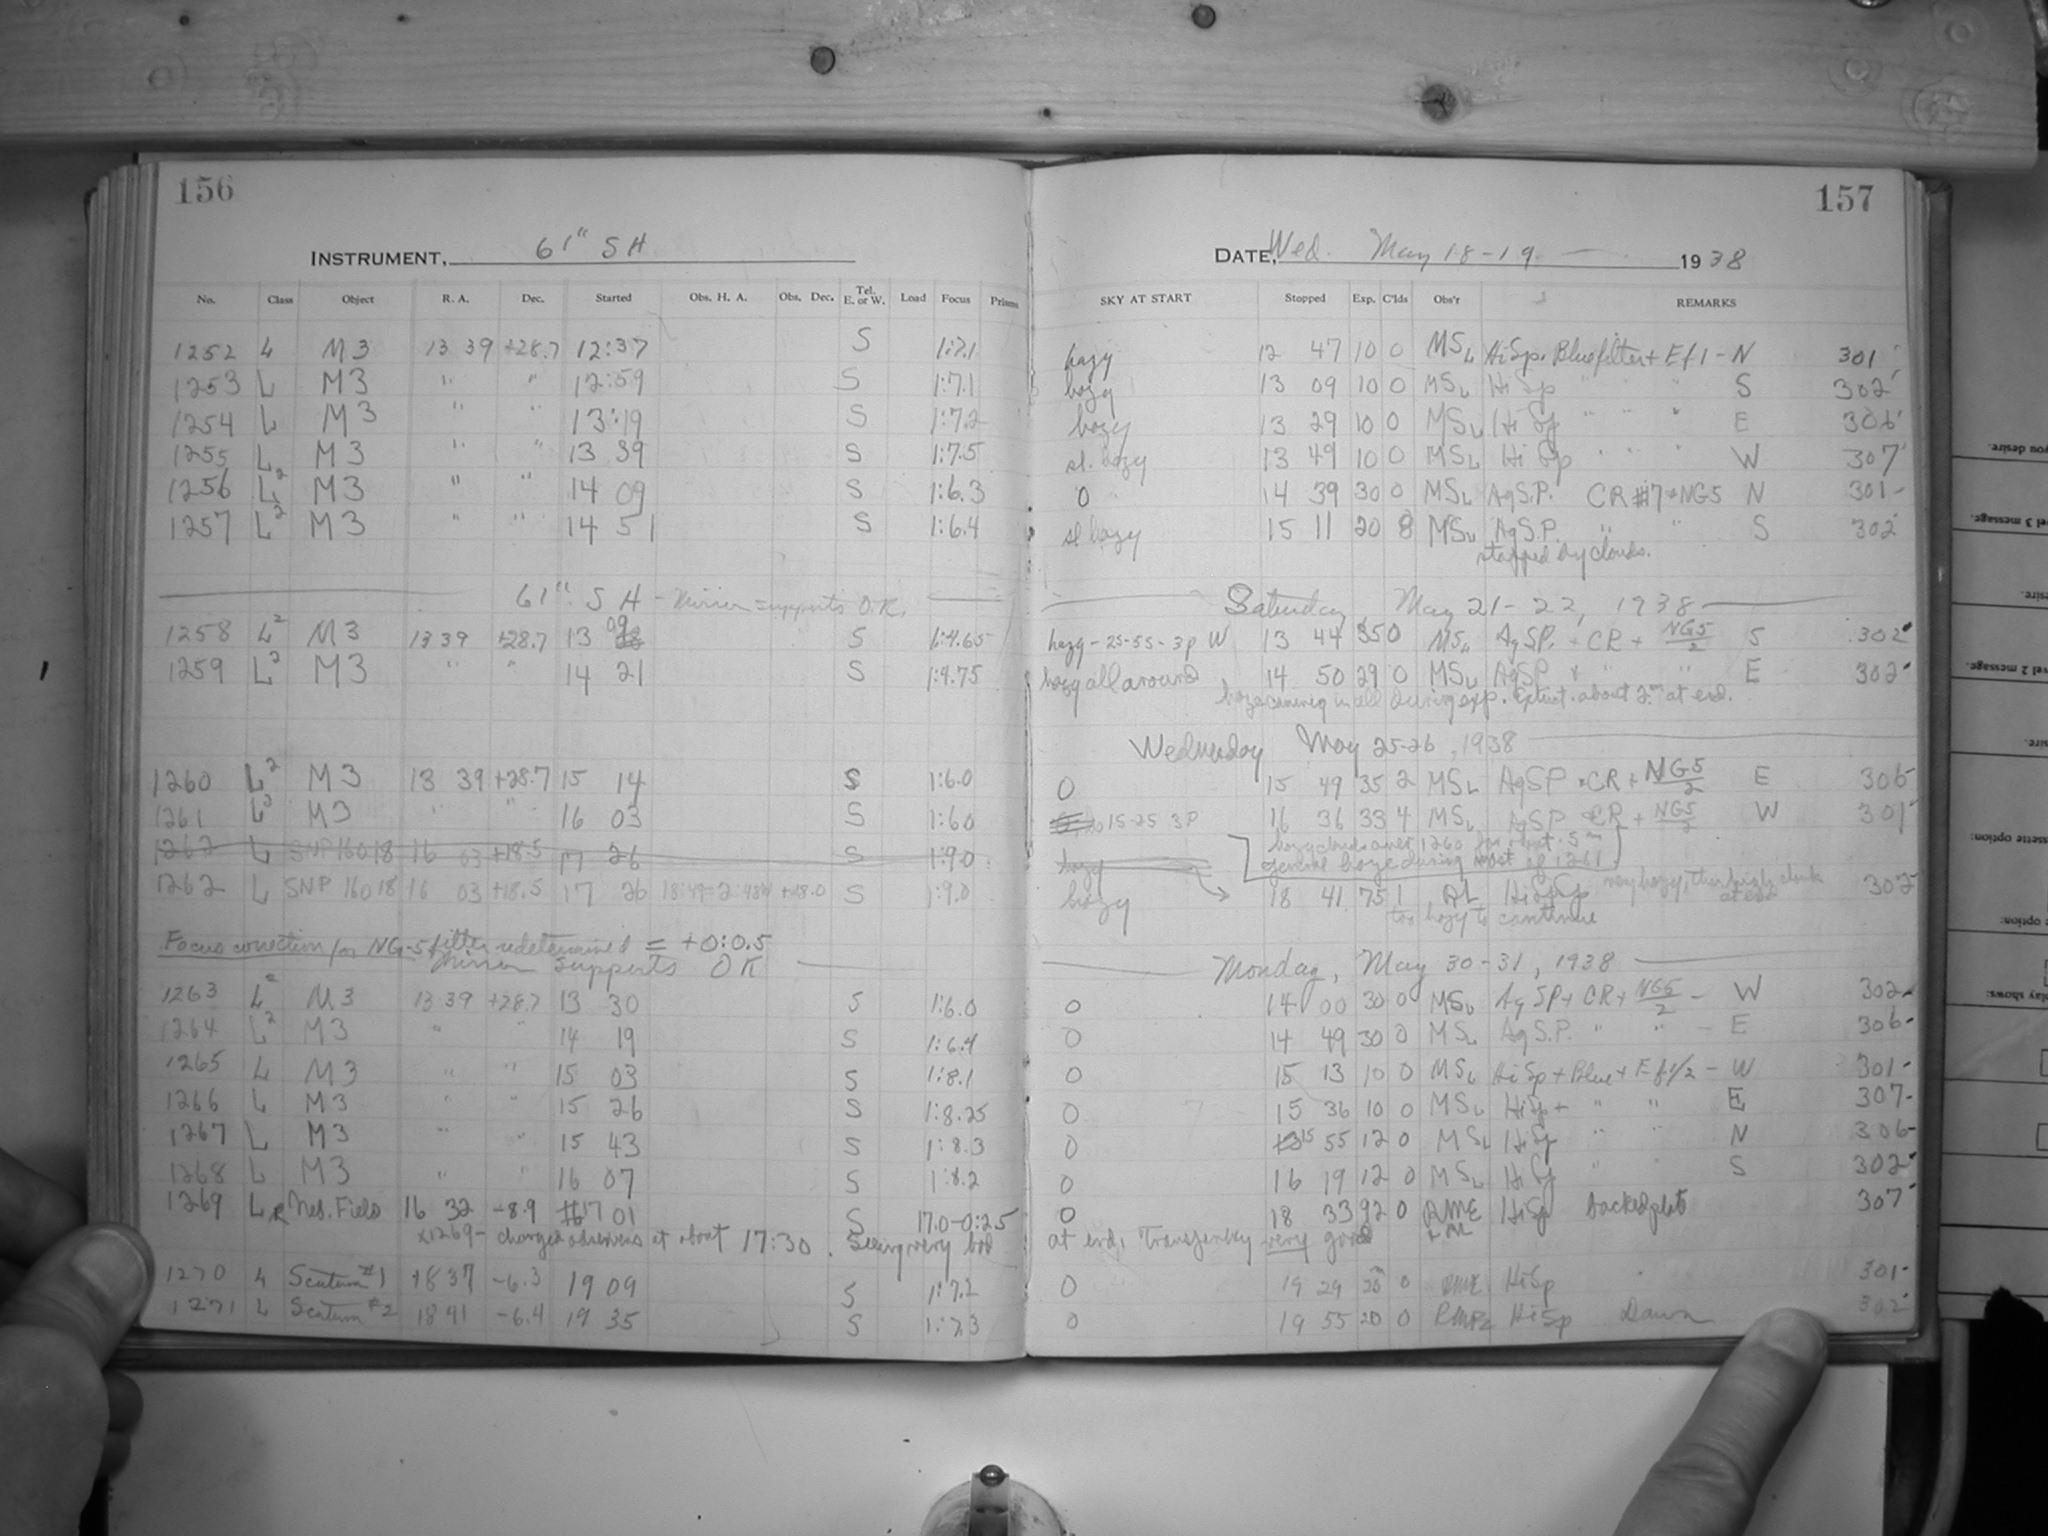 156
INSTRUMENT, 61" SH
No. Class Object R. A. Dec. Started Obs. H. A. Obs. Dec. Tel. E. or W. Load Focus Prisms
1252 L M3 13 39 +28.7 12:37 S 1:7.1
1253 L M3 " " 12:59 S 1:7.1
1254 L M3 " " 13:19 S 1:7.2
1255 L M3 " " 13 39 S 1:7.5
1256 L2 M3 " " 14 09 S 1:6.3
1257 L2 M3 " " 14 51 S 1:6.4
61" SH - Mirror supports O.K.
1258 L2 M3 13 39 +28.7 13 09 S 1:4.65
1259 L2 M3 " " 14 21 S 1:4.75
1260 L2 M3 13 39 +28.7 15 14 S 1:6.0
1261 L2 M3 " " 16 03 S 1:6.0
1262 L SNP 16018 16 03 +18.5 17 26 S 1:9.0
1262 L SNP 16018 16 03 +18.5 17 26 18:49= +18.0 S 1:9.0
Focus correction for NG-5 filter redetermined = +0:0.5
Mirror supports OK
1263 L2 M3 13 39 +28.7 13 30 S 1:6.0
1264 L2 M3 " " 14 19 S 1:6.4
1265 L M3 " " 15 03 S 1:8.1
1266 L M3 " " 15 26 S 1:8.25
1267 L M3 " " 15 43 S 1:8.3
1268 L M3 " " 16 07 S 1:8.2
1269 L Neb. Field 16 32 -8.9 17 01 S 17.0-0:25
x1269- changed observers at about 17:30. Seeing very bad
1270 L Scutum #1 18 37 -6.3 19 09 S 1:7.2
1271 L Scutum #2 18 41 -6.4 19 35 S 1:7.3
157
DATE, Wed. May 18-19 1938
SKY AT START Stopped Exp. C'lds Obs'r REMARKS
hazy 12 47 10 0 MSL HiSp. Blue filter + Ef1 - N 301
hazy 13 09 10 0 MSL HiSp " " S 302
hazy 13 29 10 0 MSL Hi Sp " " " E 306
sl. hazy 13 49 10 0 MSL Hi Sp " " " W 307
0 14 39 30 0 MSL AgS.P. CR #7+NG5 N 301-
sl hazy 15 11 20 8 MSL AgS.P. " " S 302
stopped by clouds.
Saturday, May 21-22, 1938
hazy - 25-55-3p W 13 44 35 0 MSL AgSP. + CR + NG5/2 S 302
hazy all around 14 50 29 0 MSL AgSP + " " E 302
haze coming in all during exp. Extinct. about 2m at end.
Wednesday May 25-26, 1938
0 15 49 35 2 MSL AgSP + CR + NG5/2 E 306
15-25 3P 16 36 33 4 MSL AgSP CR + NG5/2 W 301
hazy clouds over 1260 for about 5m
general haze during most of 1261
hazy
hazy 18 41 75 1 HiSp very hazy, then high clouds at end 302
too hazy to continue
Monday, May 30-31, 1938
0 14 00 30 0 MSL Ag SP + CR + NG5/2 - W 302-
0 14 49 30 0 MSL AgS.P. " " - E 306-
0 15 13 10 0 MSL HiSp + Blue + Ef1/2 - W 301-
0 15 36 10 0 MSL HiSp + " " E 307-
0 15 55 12 0 MSL HiSp " " N 306-
0 16 19 12 0 MSL HiSp " S 302
0 18 33 92 0 HiSp backed plate 307
at end. Transparency very good
0 19 29 20 0 HiSp 301-
0 19 55 20 0 HiSp Dawn 302
you desire.
vel 3 message.
desire.
vel 2 message.
sire.
ssette option:
option:
play shows: